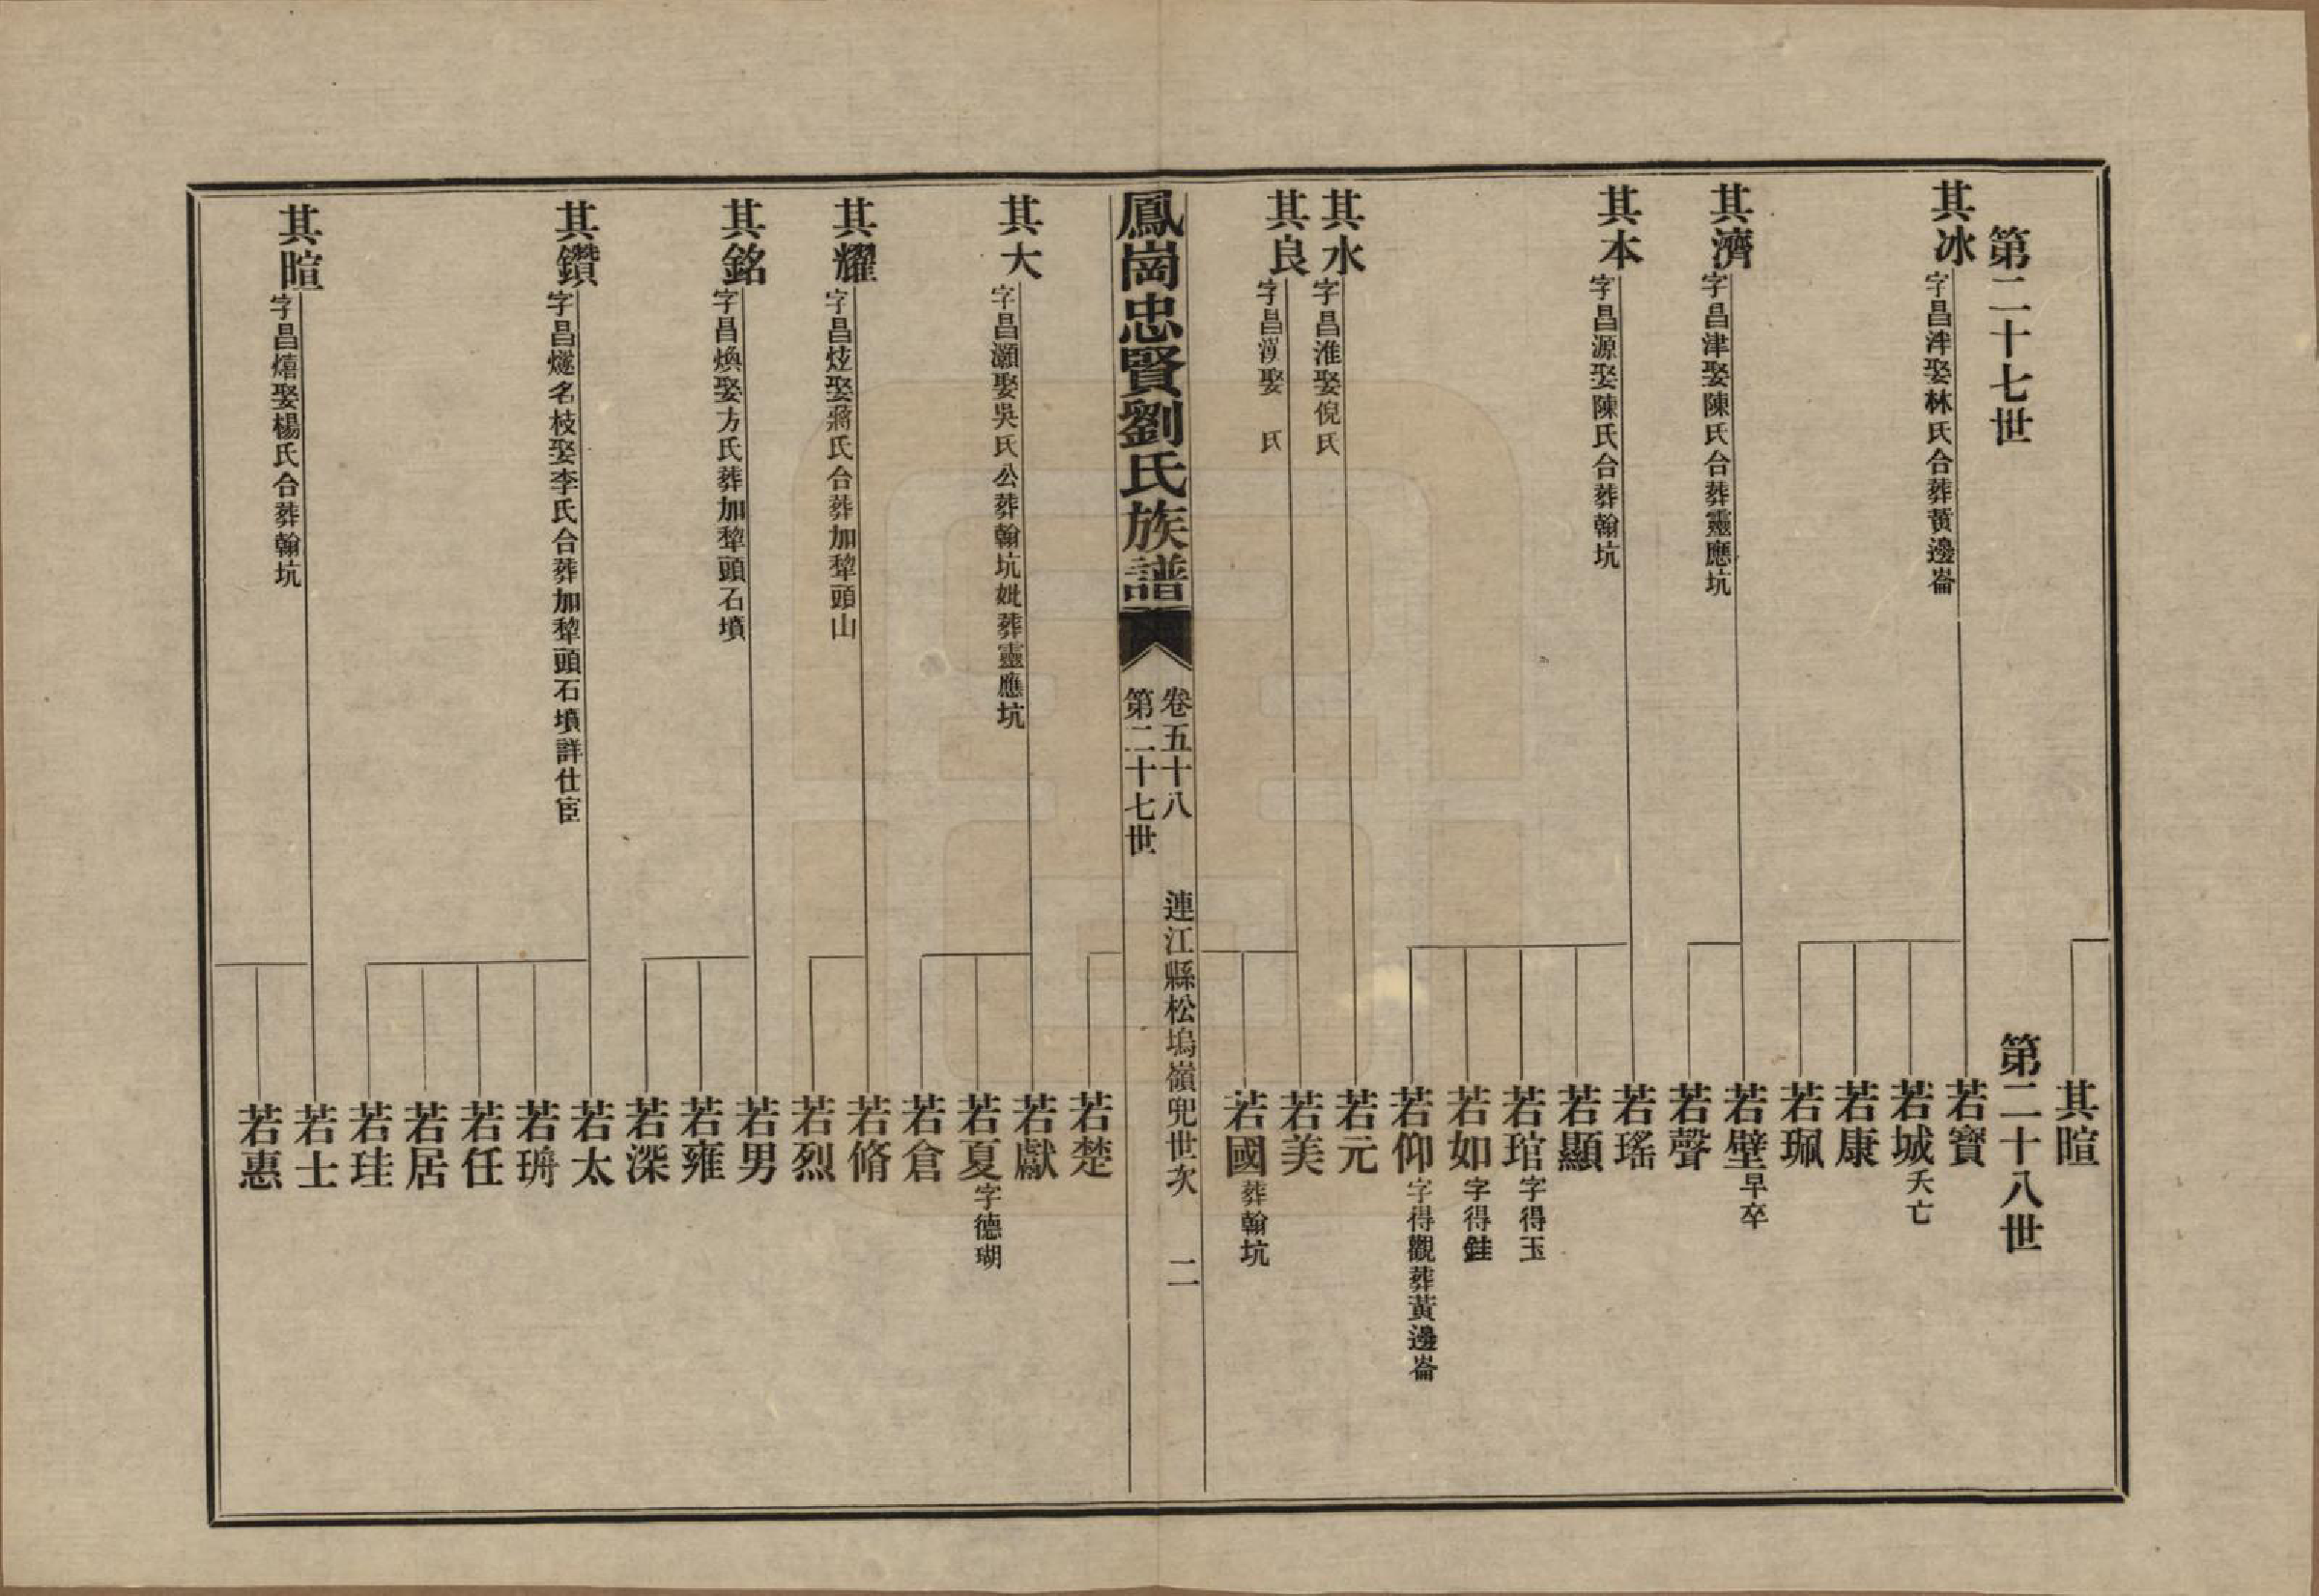 其暄
第二十七世
第二十八世
其冰
字昌泮娶林氏合葬黃邊崙
若寶
若城
夭亡
若康
若珮
其濟
字昌津娶陳氏合葬靈應坑
若璧
早卒
若聲
其本
字昌源娶陳氏合葬翰坑
若瑤
若顯
若琯
字得玉
若如
字得銈
若仰
字得觀葬黃邊崙
其水
字昌淮娶倪氏
若元
其良
字昌漢娶 氏
若美
若國
葬翰坑
鳳崗忠賢劉氏族譜
卷五十八
第二十七世
連江縣松塢嶺兜世次
二
若楚
其大
字昌灝娶吳氏公葬翰坑妣葬靈應坑
若獻
若夏
字德瑚
若倉
其耀
字昌炫娶蔣氏合葬加犂頭山
若脩
若烈
其銘
字昌煥娶方氏葬加犂頭石墳
若男
若雍
若深
其鑽
字昌燧名枝娶李氏合葬加犂頭石墳詳仕宦
若太
若琇
若任
若居
若珪
其暄
字昌熺娶楊氏合葬翰坑
若士
若惠